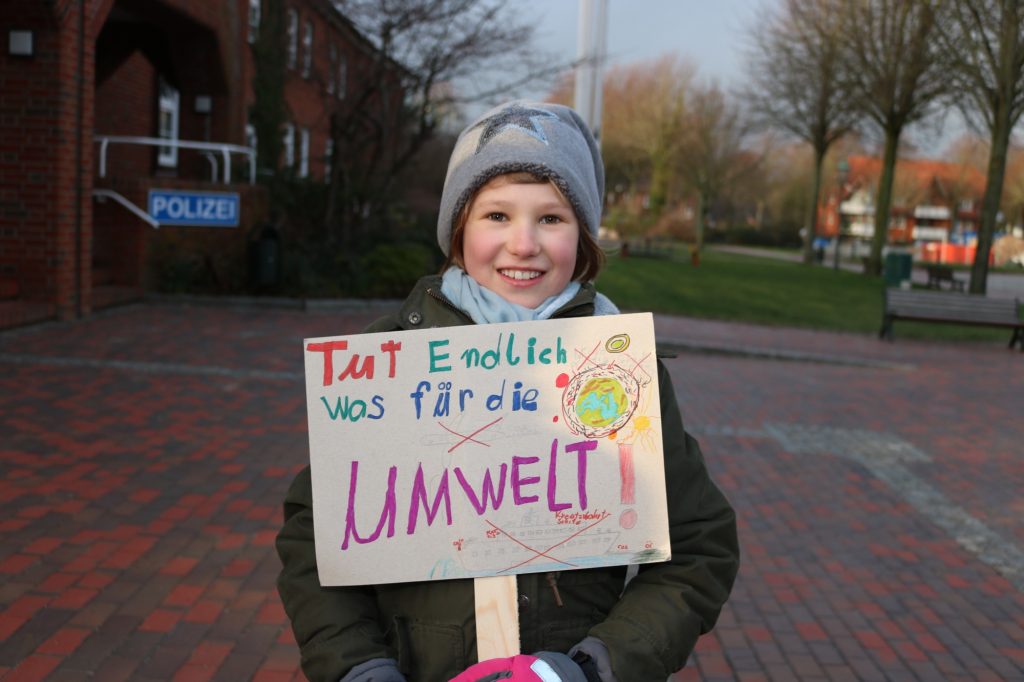 POLIZEI
Tut Endlich
was für die
UMWELT!
Kreuzfahrt-
schiff